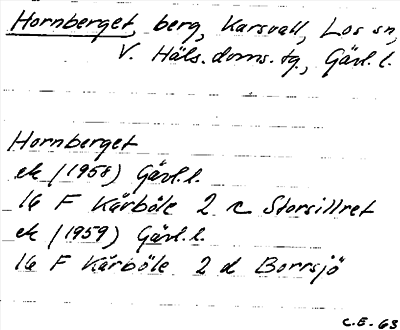 Hornberget, berg, Karsvall, Los sn,
V. Häls. doms. tg., Gävl. l.
Hornberget
ek (1958) Gävl. l.
16 F Kårböle 2 c Storsillret
ek (1959) Gävl. l.
16 F Kårböle 2 d Borrsjö
C.E. - 63